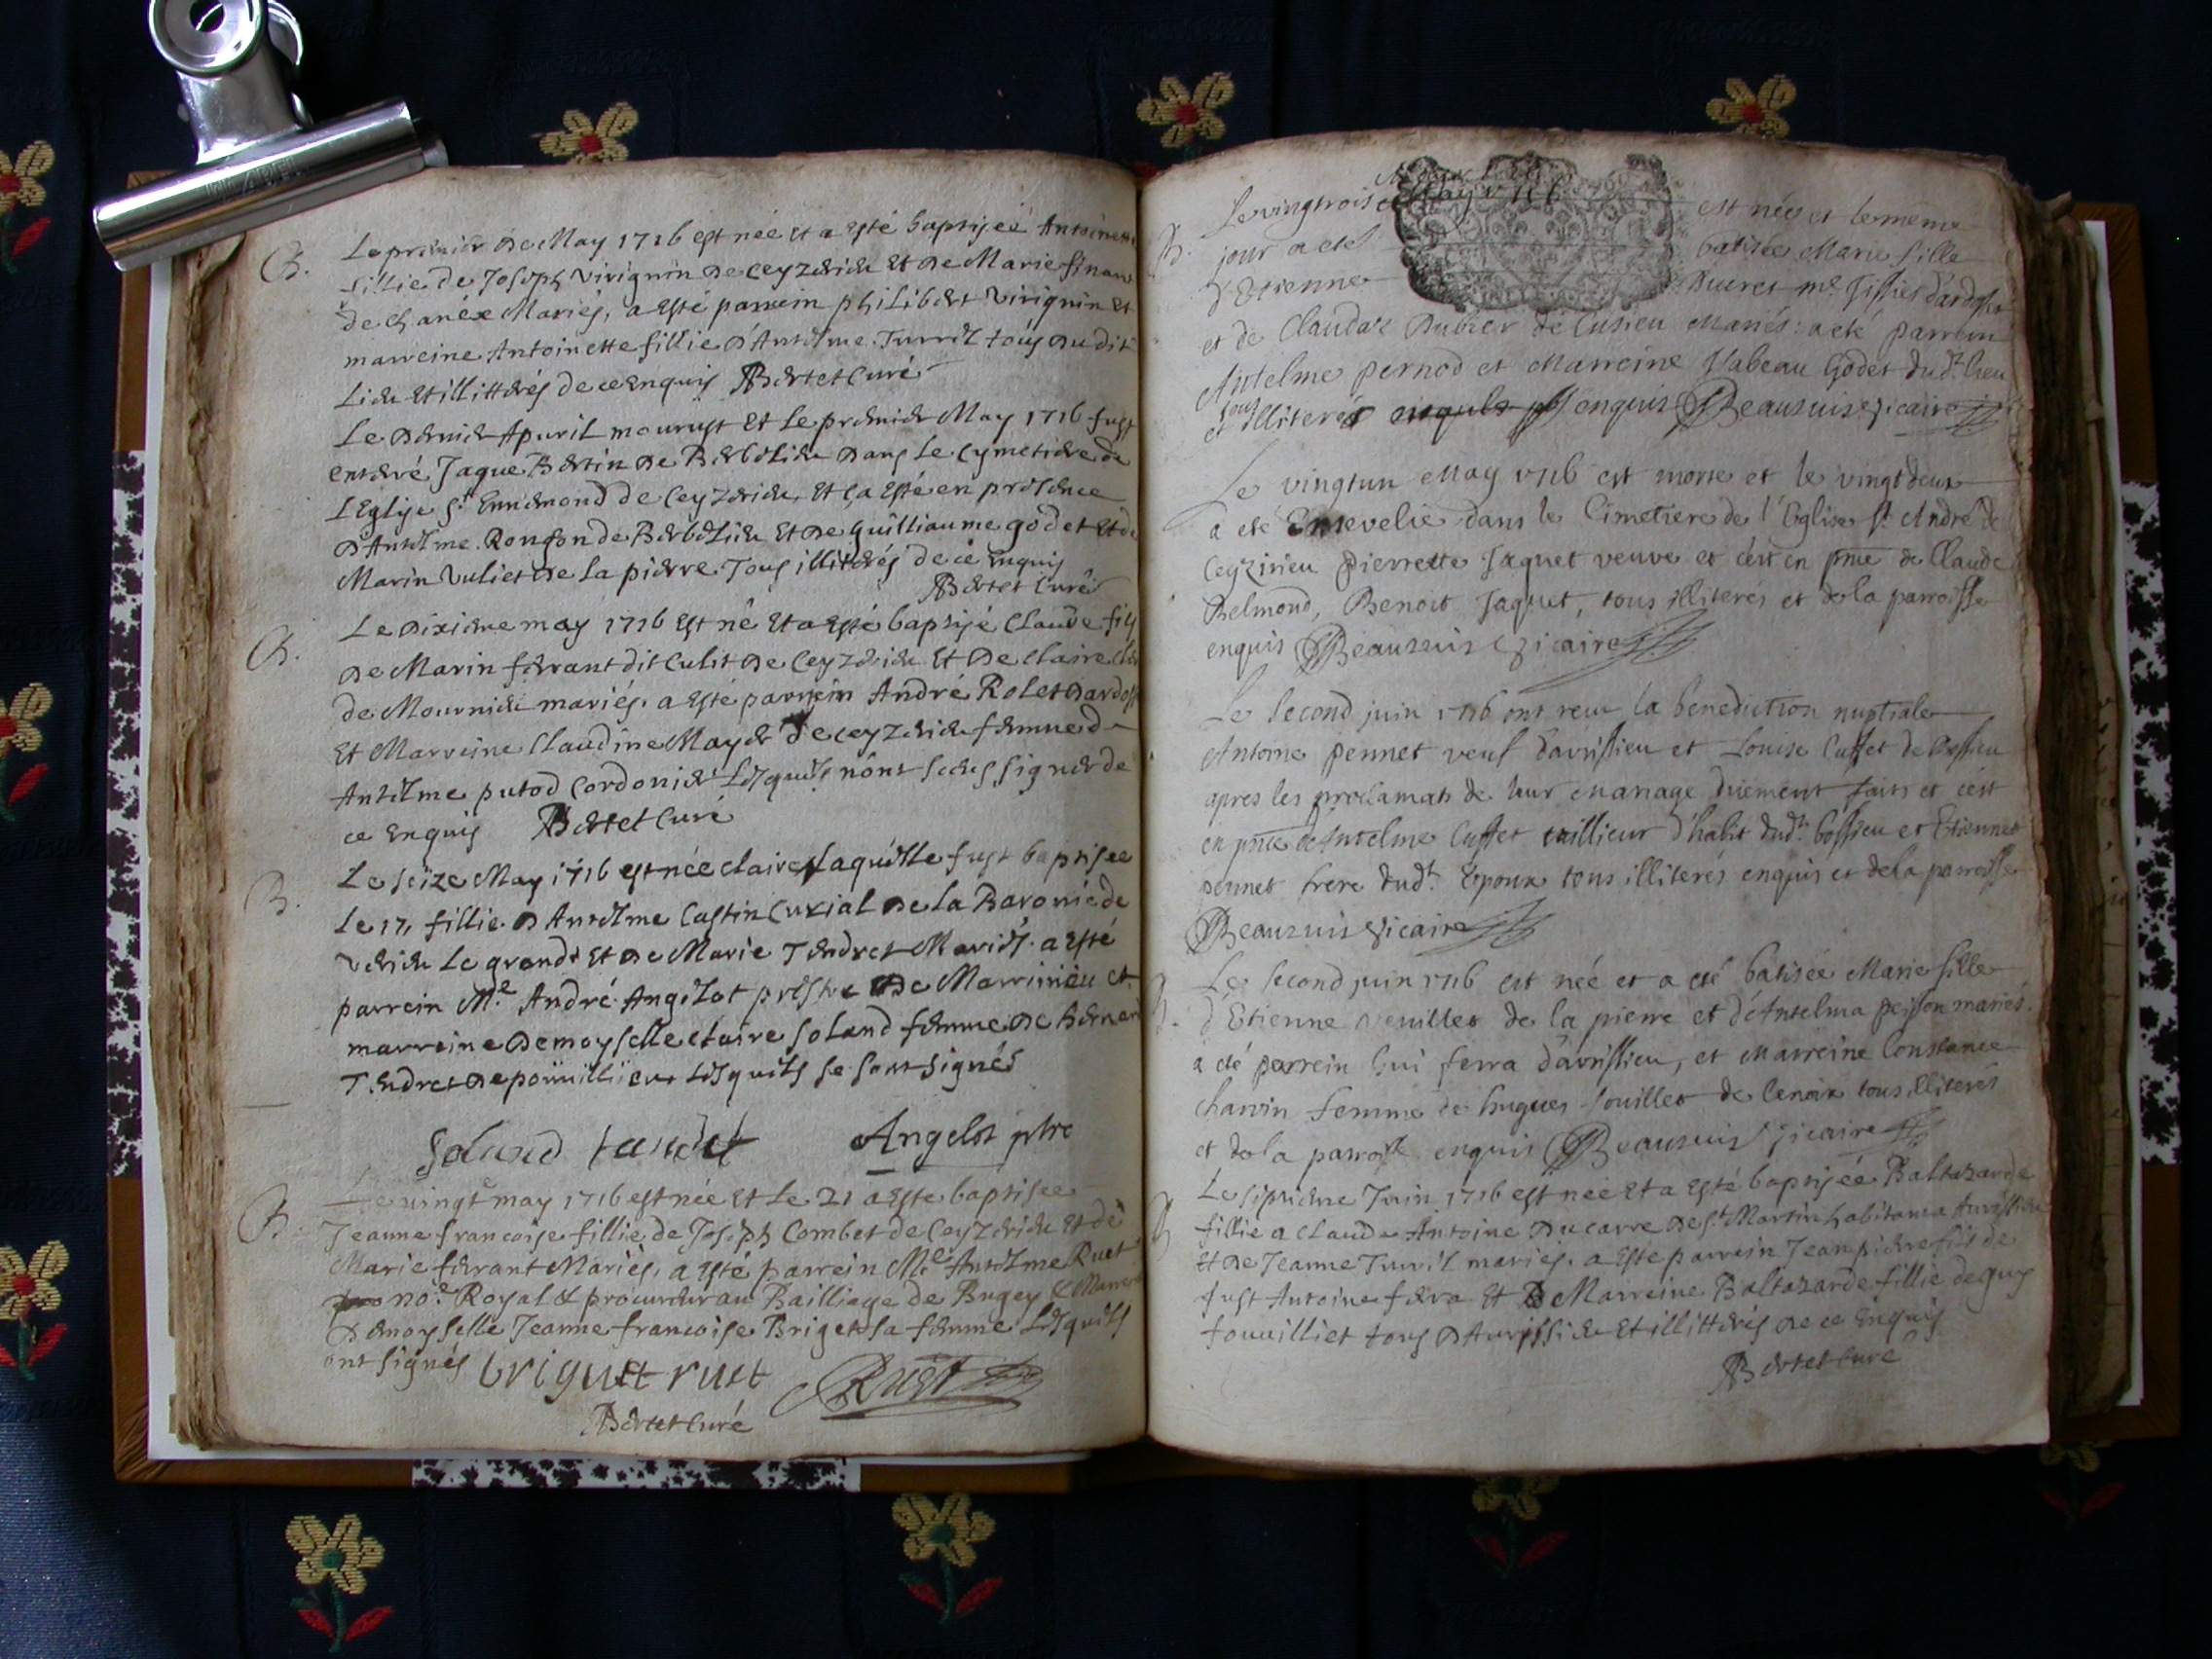 B. Le premier de May 1716 est née et a esté baptisée Antoinette
fillie de Joseph Virignin de Ceyzerieu et de Marie
de Chanéx Mariés, a esté parrein philibert Virignin et
marreine Antoinette fillie d'Antelme Turril tous dudit
Lieu et illitterés de ce Enquis Bertet Curé
Le dernier Apuril mourust et Le premier May 1716 fust
enterré Jaque Bertin de Berbelieu dans Le cymetiere de
L'Eglise St Ennemond de Ceyzerieu, Et ça Esté en presence
d'Antelme Rougon de Berbelieu et de guilliaume godet et de
Marin Vuliet de La pierre Tous illiterés de ce Enquis
Bertet Curé
B. Le dixieme may 1716 est né et a esté baptisé Claude fils
de Marin ferrant dit Culet de Ceyzerieu et de Claire
de Mournieu mariés, a esté parrein André Rolet
Et Marreine Claudine Mayer de ceyzerieu femme d
Antelme putod Cordonier Lesquels n'ont sceus signer de
ce Enquis Bertet Curé
B. Le seize May 1716 est née claire Laquelle fust baptisee
Le 17, fillie d'Antelme Castin Curial de La Baronie de
Verieu Le grand et de Marie Tendret Mariés. a esté
parrein Mre André Angelot prestre de Marrinieu et
marreine Demoyselle claire Soland femme de
Tendret de poüillieu Lesquels se sont signés
Soland tendret Angelot ptre
B. Le vingt may 1716 est née Et Le 21 a esté baptisee
Jeanne francoise fillie de Joseph Combet de Ceyzerieu et de
Marie ferrant Mariés, a esté parrein Me Antelme Ruet
nore Royal & procureur au Bailliage de Bugey &
Demoyselle Jeanne francoise Briget sa femme Lesquels
ont signés briguet ruet Ruet
Bertet Curé
Le vingtrois May 1716 est née et le meme
B. jour a eté batisée Marie fille
d'Etienne
et de Claudaz Dubier de Cusieu mariés: a eté parrein
Antelme pernod et Marreine Isabeau Godet dudt lieu
tous
et illiterés enquis Beausuis Vicaire
Le vingtun May 1716 est morte et le vingt deux
a eté Ensevelie dans le Cimetiere de l'Eglise St André de
Ceyzirieu Pierrette Jaquet veuve et c'est en pnce de Claude
Belmond, Benoit Jaquet, tous illiterés et de la parroisse
enquis Beausuis Vicaire
Le second juin 1716 ont recu la benediction nuptiale
Antoine pennet veuf d'avrissieu et Louise Cusset de
apres les proclamats de leur mariage duement faits et c'est
en pnce d'Antelme Cusset taillieur d'habit dudt bossieu et Etienne
pennet frere dudt Epoux tous illiterés enquis et de la parroisse
Beausuis Vicaire
B. Le second juin 1716 est née et a eté batisée Marie fille
d'Etienne Veuillet de la pierre et d'Antelma peisson mariés.
a eté parrein Gui ferra d'avrissieu, et Marreine Constance
charvin femme de hugues de lenoix tous illiterés
et de la parroisse enquis Beausuis Vicaire
B Le sixieme Juin 1716 est née et a esté baptisée Baltazarde
fillie a Claude Antoine Ducarre de St Martin habitant a Avrissieu
et de Jeanne Turril mariés. a esté parrein Jean pierre fils de
fust Antoine ferra Et Marreine Baltazarde fillie de guy
touuilliet tous d'Avrissieu et illitterés de ce Enquis
Bertet Curé